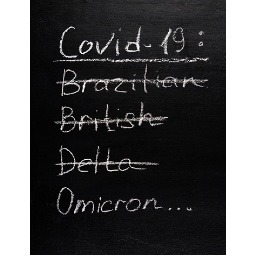 Covid-19:
Brazilian
British
Delta
Omicron...